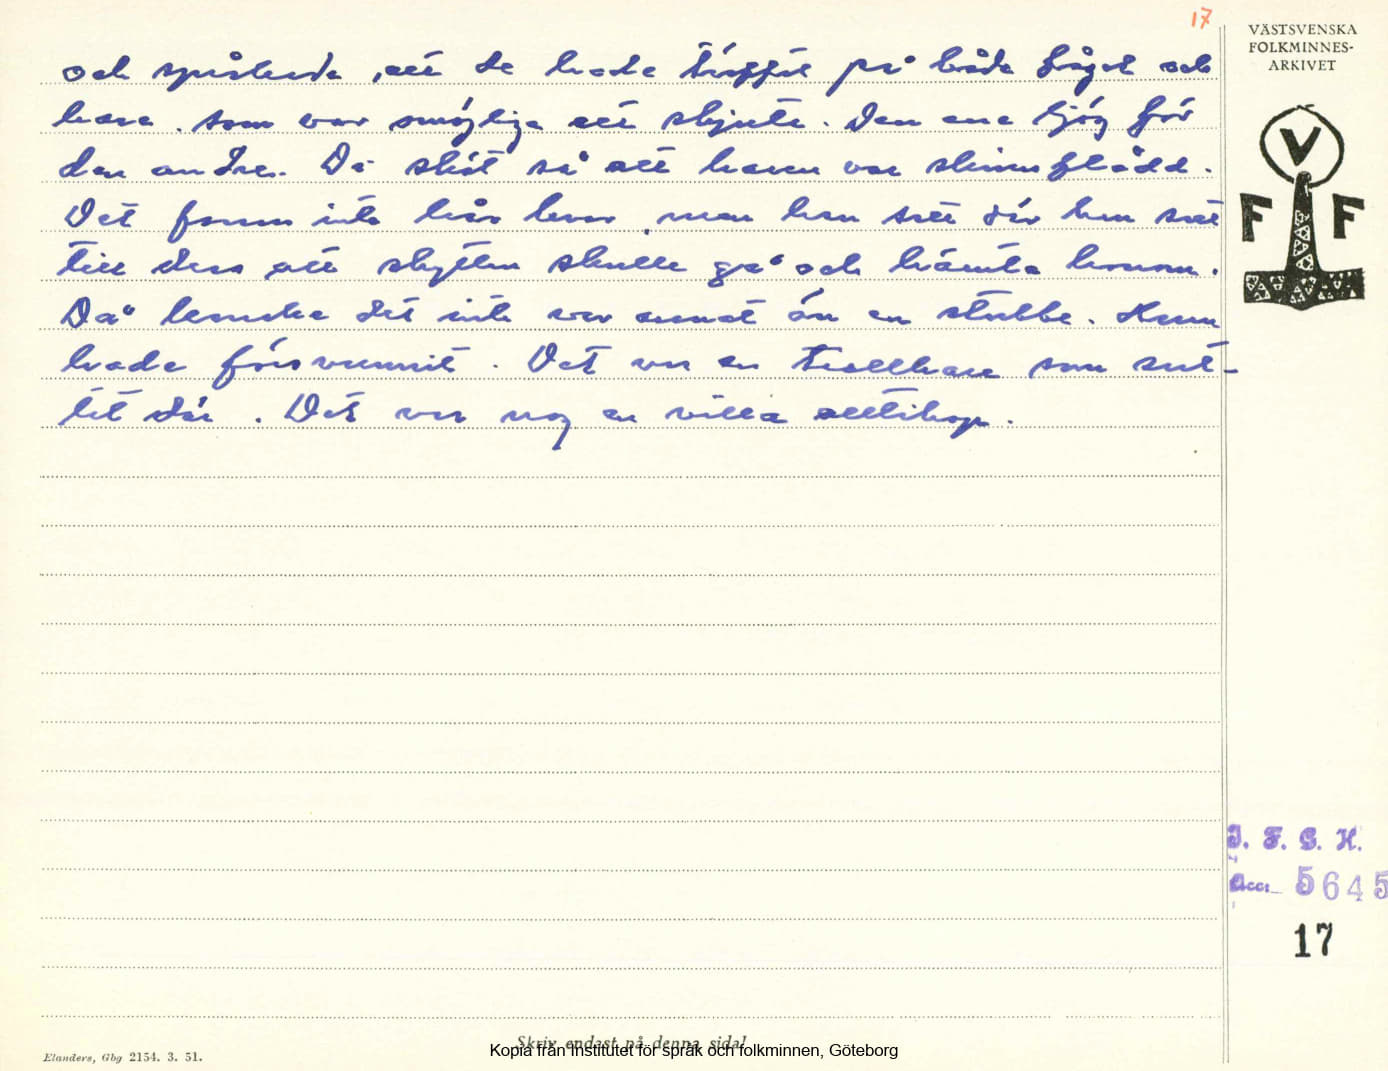 17
VÄSTSVENSKA
FOLKMINNES-
ARKIVET
V
F F
och språkade, att de hade träffat på både fågel och
hare som var omöjliga att skjuta. Den ena ljög för
den andre. De sköt så att haren var skinnflådd.
Det fanns inte hår kvar, men han satt där han satt
till dess att skytten skulle gå och hämta honom.
Då kanske det inte var annat än en stubbe. Han
hade försvunnit. Det var en trollhare som sut-
tit där. Det var nog en villa alltihop.
I. F. G. H.
Acc. 5645
17
Skriv endast på denna sida!
Kopia från Institutet för språk och folkminnen, Göteborg
Elanders, Gbg 2154. 3. 51.